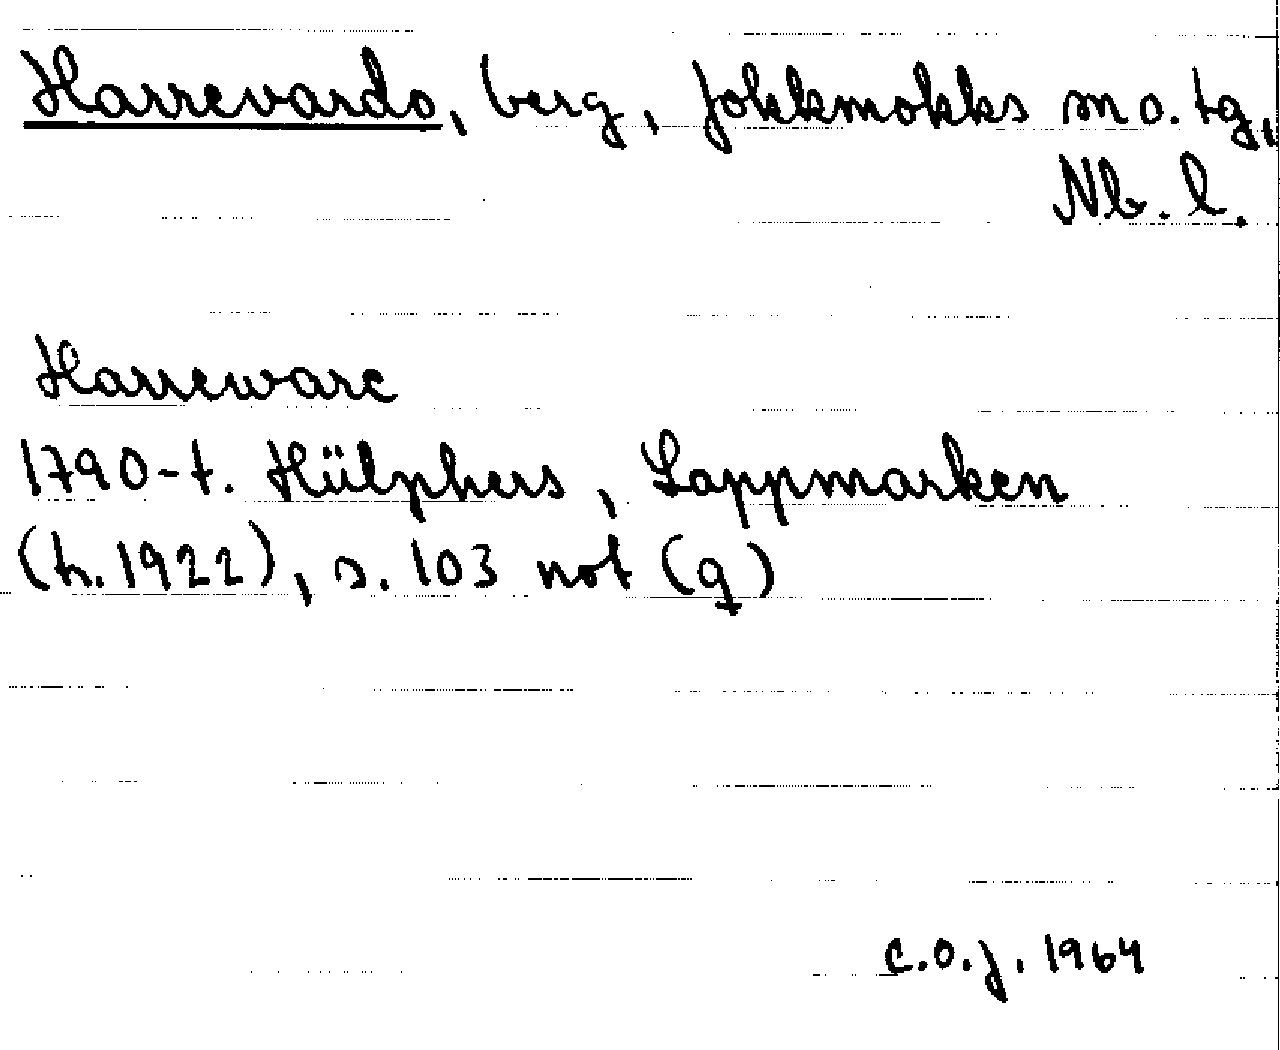 Harrevardo, berg, Jokkmokks sn o. tg,
Nb. l.
Harreware
1790-t. Hülphers, Lappmarken
(h. 1922), s. 103 not (q)
C.O.J. 1964